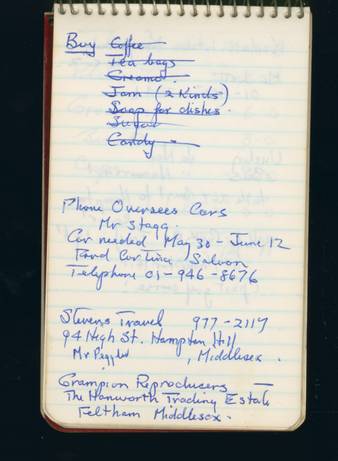 Buy Coffee
Tea bags
Creamo
Jam (2 Kinds)
Soap for dishes
Sugar
Candy
Phone Overseas Cars
Mr Stagg
Car needed May 30 - June 12
Ford Cortina Saloon
Telephone 01-946-8676
Stevens Travel 977-2117
94 High St. Hampton Hill
Mr , Middlesex
Grampion Reproducers
The Hanworth Trading Estate
Feltham Middlesex.